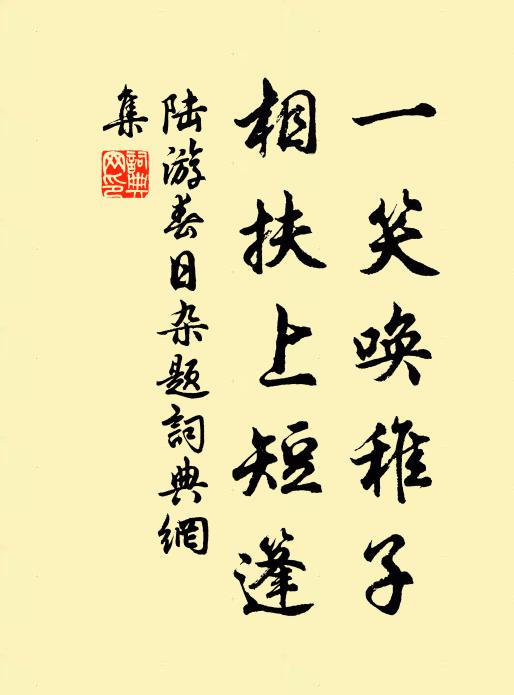 一笑唤稚子
相扶上短篷
陆游春日杂题詞典網
集
詞典網印